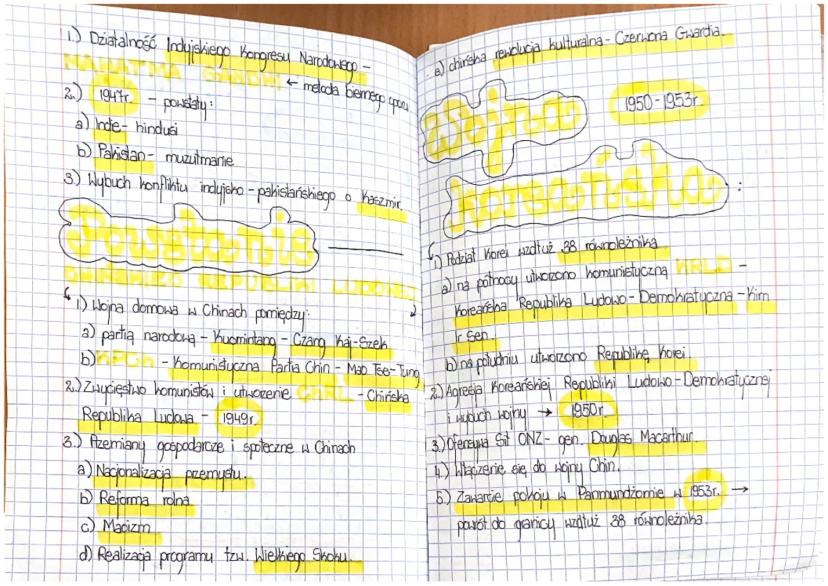 1.) Działalność Indyjskiego Kongresu Narodowego -
MAHATMA GANDHI ← metoda biernego oporu
2.) 1947r. - powstały:
a) Indie - hindusi
b) Pakistan - muzułmanie
3.) Wybuch konfliktu indyjsko - pakistańskiego o Kaszmir.
Powstanie
CHIŃSKIEJ REPUBLIKI LUDOWEJ
1.) Wojna domowa w Chinach pomiędzy:
a) partią narodową - Kuomintang - Czang Kaj-Szek
b) KPCh - Komunistyczna Partia Chin - Mao Tse-Tung
2.) Zwycięstwo komunistów i utworzenie ChRL - Chińska
Republika Ludowa - 1949r.
3.) Przemiany gospodarcze i społeczne w Chinach
a) Nacjonalizacja przemysłu.
b) Reforma rolna
c) Maoizm
d) Realizacja programu tzw. Wielkiego Skoku.
e) chińska rewolucja kulturalna - Czerwona Gwardia.
Wojna 1950-1953r.
koreańska:
1) Podział Korei wzdłuż 38 równoleżnika
a) na północy utworzono komunistyczną KRLD -
Koreańska Republika Ludowo - Demokratyczna - Kim
Ir Sen.
b) na południu utworzono Republikę Korei
2.) Agresja Koreańskiej Republiki Ludowo - Demokratycznej
i wybuch wojny → 1950r.
3.) Ofensywa Sił ONZ - gen. Douglas Macarthur.
4.) Włączenie się do wojny Chin.
5) Zawarcie pokoju w Panmundżomie w 1953r. →
powrót do granicy wzdłuż 38 równoleżnika.